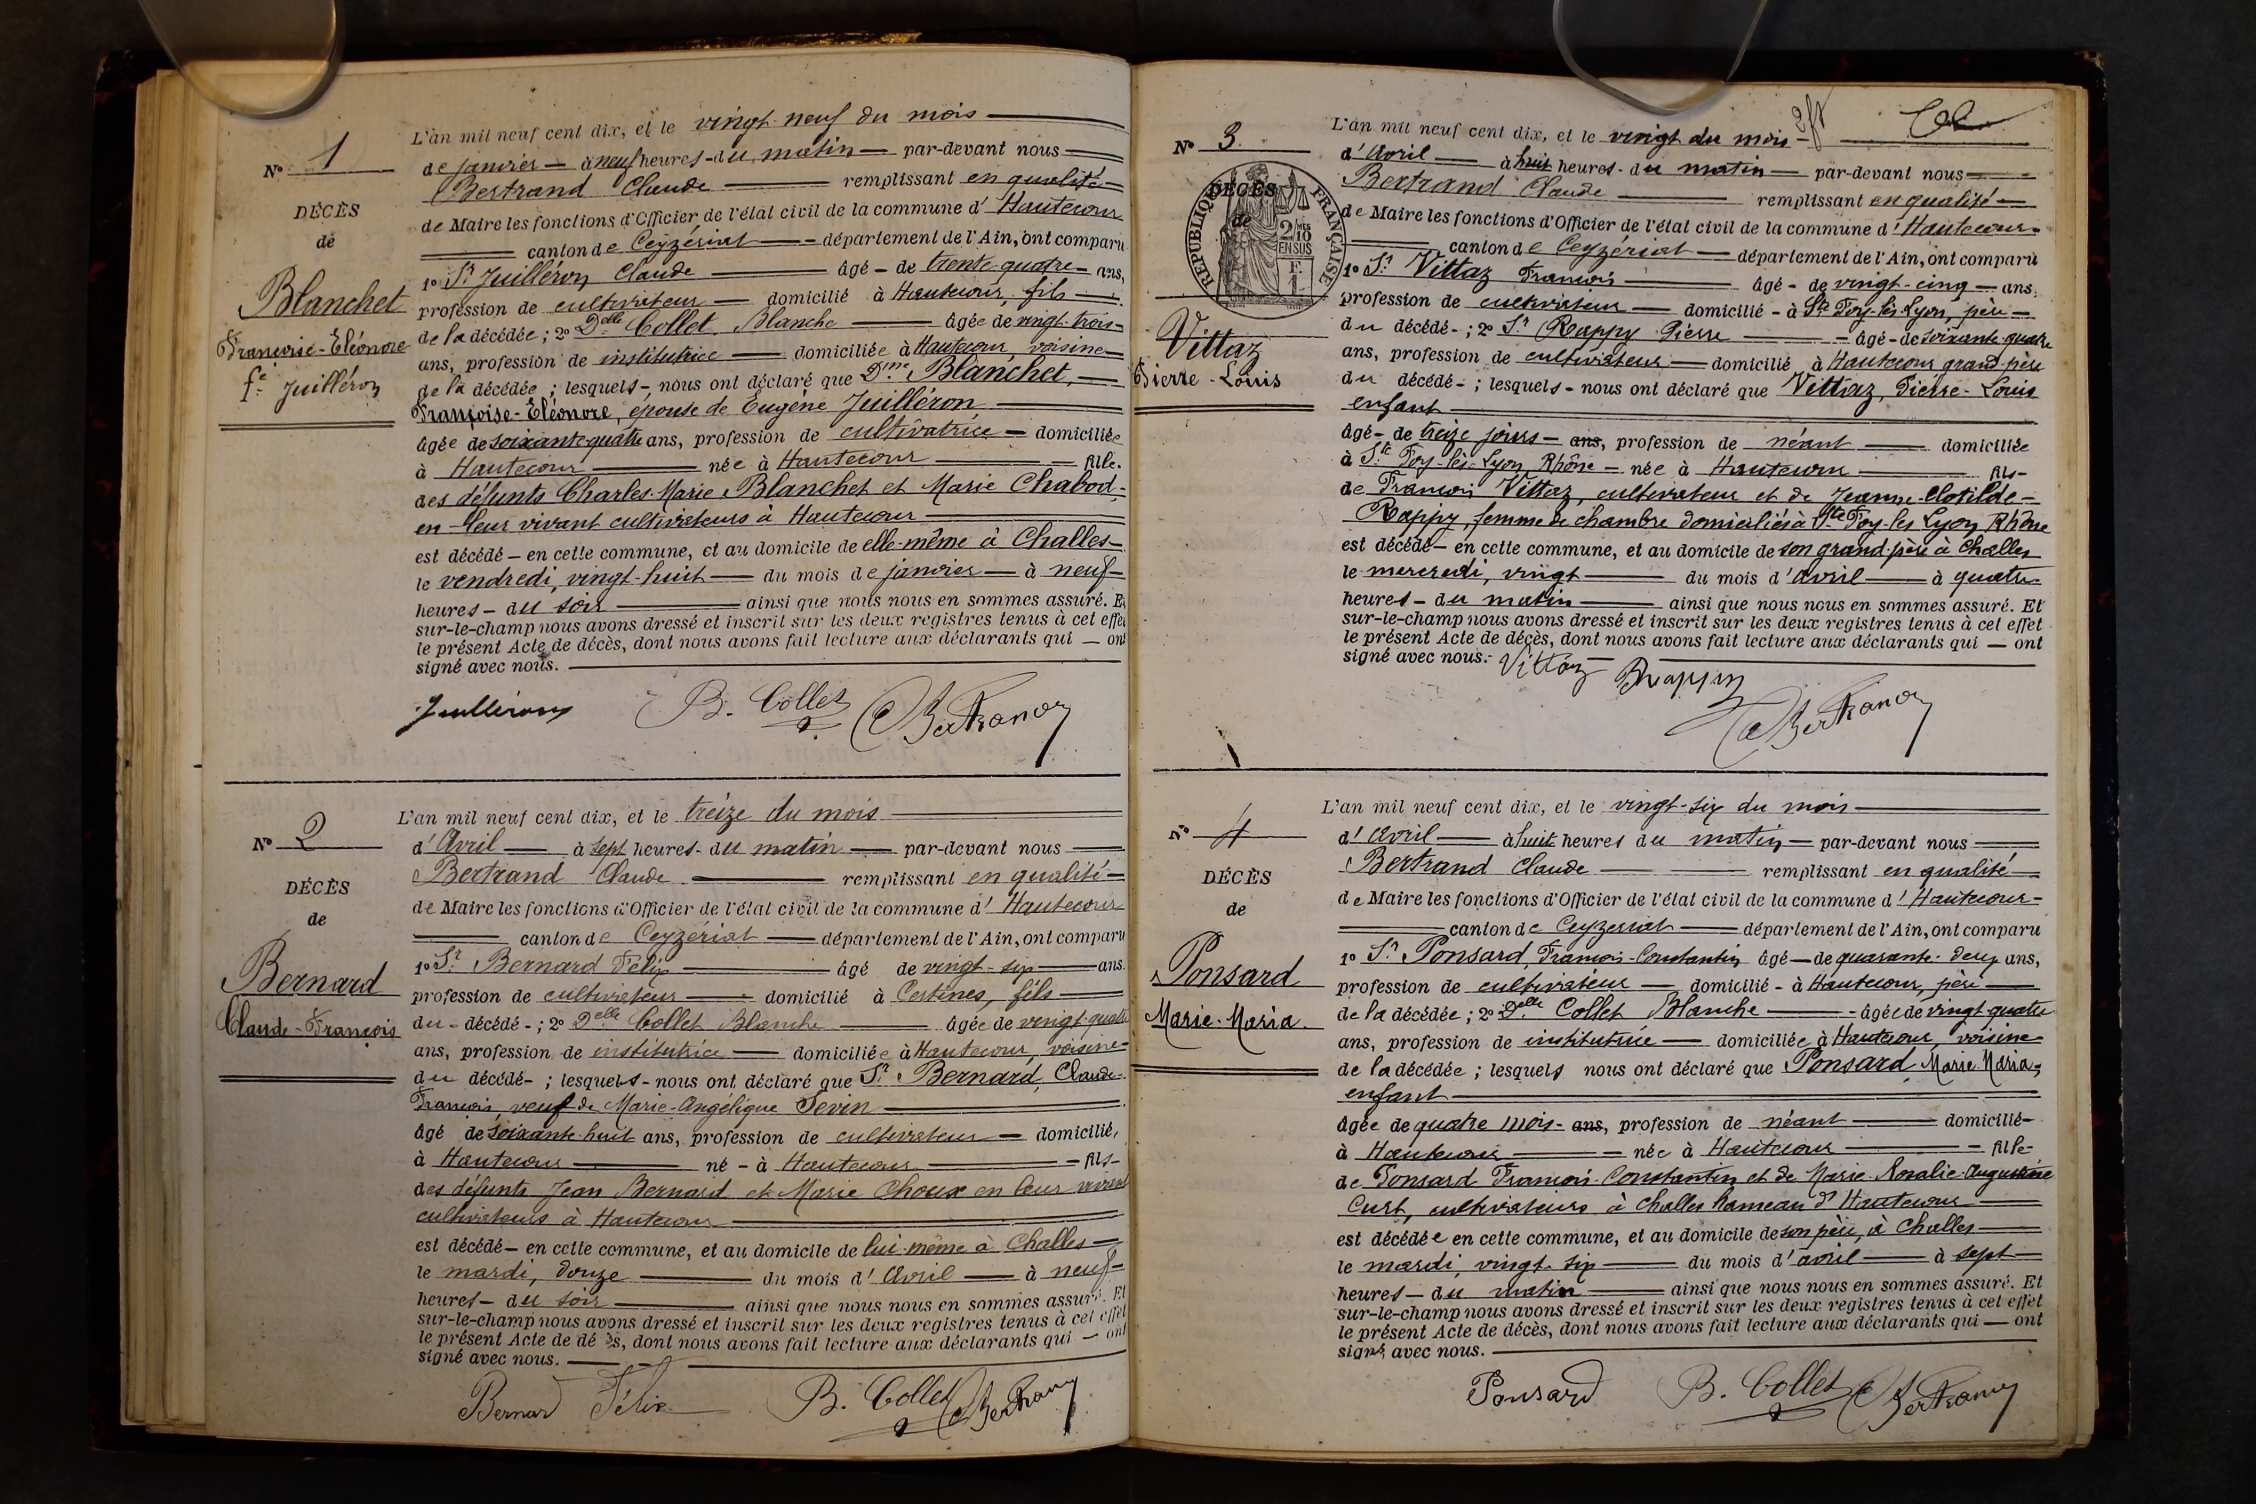 N° 1
DÉCÈS
de
Blanchet
Françoise-Eléonore
fe Juilléron
L'an mil neuf cent dix, et le vingt neuf du mois
de janvier à neuf heures du matin par-devant nous
Bertrand Claude remplissant en qualité
de Maire les fonctions d'Officier de l'état civil de la commune d'Hautecour
canton de Ceyzériat département de l'Ain, ont comparu
1° Sr Juilléron Claude âgé de trente-quatre ans,
profession de cultivateur domicilié à Hautecour, fils
de la décédée ; 2° Delle Collet Blanche âgée de vingt-trois
ans, profession de institutrice domiciliée à Hautecour, voisine
de la décédée ; lesquels nous ont déclaré que Dme Blanchet,
Françoise-Eléonore, épouse de Eugène Juilléron
âgée de soixante-quatre ans, profession de cultivatrice domiciliée
à Hautecour née à Hautecour fille
des défunts Charles-Marie Blanchet et Marie Chabod
en leur vivant cultivateurs à Hautecour
est décédé en cette commune, et au domicile de elle-même à Challes
le vendredi, vingt-huit du mois de janvier à neuf
heures du soir ainsi que nous nous en sommes assuré. Et
sur-le-champ nous avons dressé et inscrit sur les deux registres tenus à cet effet
le présent Acte de décès, dont nous avons fait lecture aux déclarants qui ont
signé avec nous.
Juilléron B. Collet C Bertrand
N° 2
DÉCÈS
de
Bernard
Claude-François
L'an mil neuf cent dix, et le treize du mois
d'Avril à sept heures du matin par-devant nous
Bertrand Claude remplissant en qualité
de Maire les fonctions d'Officier de l'état civil de la commune d'Hautecour
canton de Ceyzeriat département de l'Ain, ont comparu
1° Sr Bernard Félix âgé de vingt-six ans.
profession de cultivateur domicilié à Certines, fils
du décédé ; 2° Delle Collet Blanche âgée de vingt-quatre
ans, profession de institutrice domiciliée à Hautecour, voisine
du décédé ; lesquels nous ont déclaré que Sr Bernard, Claude
François, veuf de Marie-Angélique Sevin
âgé de soixante-huit ans, profession de cultivateur domicilié
à Hautecour né à Hautecour fils
des défunts Jean Bernard et Marie Choux en leur vivant
cultivateurs à Hautecour
est décédé en cette commune, et au domicile de lui-même à Challes
le mardi, douze du mois d'Avril à neuf
heures du soir ainsi que nous nous en sommes assuré. Et
sur-le-champ nous avons dressé et inscrit sur les deux registres tenus à cet effet
le présent Acte de décès, dont nous avons fait lecture aux déclarants qui ont
signé avec nous.
Bernard Félix B. Collet C Bertrand
N° 3
DÉCÈS
de
RÉPUBLIQUE FRANÇAISE
2/10 EN SUS
Vittaz
Pierre-Louis
L'an mil neuf cent dix, et le vingt du mois
d'Avril à huit heures du matin par-devant nous
Bertrand Claude remplissant en qualité
de Maire les fonctions d'Officier de l'état civil de la commune d'Hautecour
canton de Ceyzériat département de l'Ain, ont comparu
1° Sr Vittaz François âgé de vingt-cinq ans,
profession de cultivateur domicilié à Ste Foy-lès-Lyon, père
du décédé ; 2° Sr Rappy Pierre âgé de soixante-quatre
ans, profession de cultivateur domicilié à Hautecour grand père
du décédé ; lesquels nous ont déclaré que Vittaz, Pierre-Louis
enfant
âgé de treize jours ans, profession de néant domiciliée
à Ste Foy-lès-Lyon, Rhône née à Hautecour fils
de François Vittaz, cultivateur et de Jeanne-Clotilde
Rappy, femme de chambre domiciliés à Ste Foy-les Lyon Rhône
est décédé en cette commune, et au domicile de son grand-père à Challes
le mercredi, vingt du mois d'avril à quatre
heures du matin ainsi que nous nous en sommes assuré. Et
sur-le-champ nous avons dressé et inscrit sur les deux registres tenus à cet effet
le présent Acte de décès, dont nous avons fait lecture aux déclarants qui ont
signé avec nous.
Vittaz Rappy C Bertrand
N° 4
DÉCÈS
de
Ponsard
Marie-Maria
L'an mil neuf cent dix, et le vingt-six du mois
d'Avril à huit heures du matin par-devant nous
Bertrand Claude remplissant en qualité
de Maire les fonctions d'Officier de l'état civil de la commune d'Hautecour
canton de Ceyzeriat département de l'Ain, ont comparu
1° Sr Ponsard, François-Constantin âgé de quarante-deux ans,
profession de cultivateur domicilié à Hautecour, père
de la décédée ; 2° Delle Collet Blanche âgée de vingt-quatre
ans, profession de institutrice domiciliée à Hautecour, voisine
de la décédée ; lesquels nous ont déclaré que Ponsard, Marie-Maria,
enfant
âgée de quatre mois ans, profession de néant domicilié
à Hautecour née à Hautecour fille
de Ponsard François-Constantin et de Marie-Rosalie-Augustine
Curt, cultivateurs à Challes hameau d'Hautecour
est décédée en cette commune, et au domicile de son père, à Challes
le mardi, vingt-six du mois d'avril à sept
heures du matin ainsi que nous nous en sommes assuré. Et
sur-le-champ nous avons dressé et inscrit sur les deux registres tenus à cet effet
le présent Acte de décès, dont nous avons fait lecture aux déclarants qui ont
signé avec nous.
Ponsard B. Collet C Bertrand